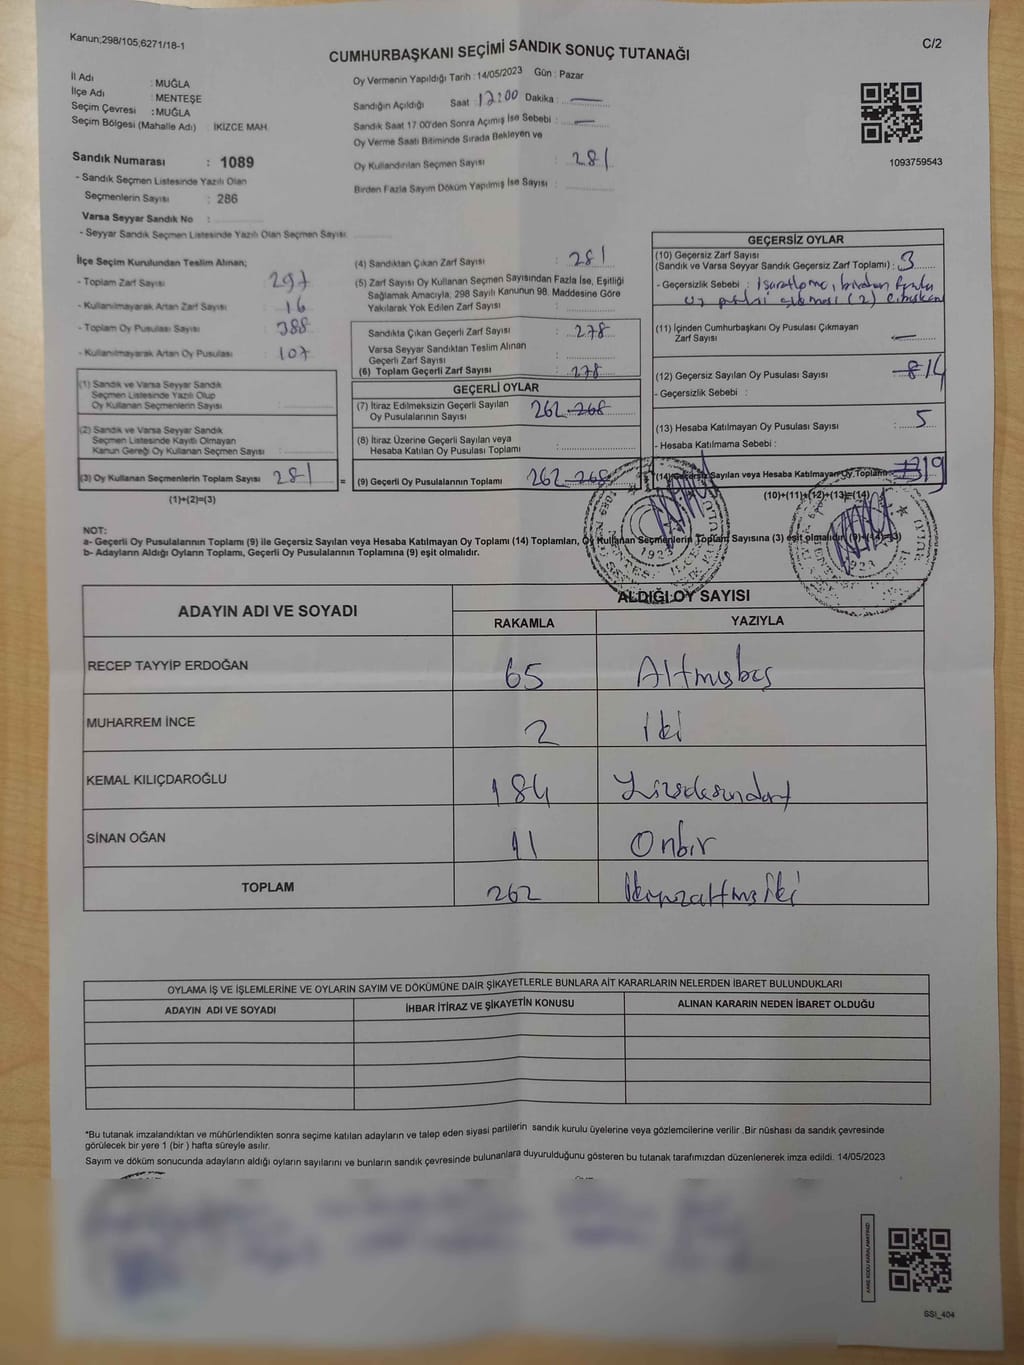 Kanun;298/105,6271/18-1
C/2
CUMHURBAŞKANI SEÇİMİ SANDIK SONUÇ TUTANAĞI
İl Adı : MUĞLA
İlçe Adı : MENTEŞE
Seçim Çevresi : MUĞLA
Seçim Bölgesi (Mahalle Adı) : İKİZCE MAH.
Sandık Numarası : 1089
- Sandık Seçmen Listesinde Yazılı Olan
Seçmenlerin Sayısı : 286
Varsa Seyyar Sandık No :
- Seyyar Sandık Seçmen Listesinde Yazılı Olan Seçmen Sayısı:
Oy Vermenin Yapıldığı Tarih : 14/05/2023 Gün : Pazar
Sandığın Açıldığı Saat : 17:00 Dakika : —
Sandık Saat 17.00'den Sonra Açımış İse Sebebi : —
Oy Verme Saati Bitiminde Sırada Bekleyen ve
Oy Kullandırılan Seçmen Sayısı : 281
Birden Fazla Sayım Döküm Yapılmış İse Sayısı :
1093759543
İlçe Seçim Kurulundan Teslim Alınan;
- Toplam Zarf Sayısı : 297
- Kullanılmayarak Artan Zarf Sayısı : 16
- Toplam Oy Pusulası Sayısı : 388
- Kullanılmayarak Artan Oy Pusulası : 107
(1) Sandık ve Varsa Seyyar Sandık
Seçmen Listesinde Yazılı Olup
Oy Kullanan Seçmenlerin Sayısı :
(2) Sandık ve Varsa Seyyar Sandık
Seçmen Listesinde Kayıtlı Olmayan
Kanun Gereği Oy Kullanan Seçmen Sayısı :
(3) Oy Kullanan Seçmenlerin Toplam Sayısı 281 =
(1)+(2)=(3)
(4) Sandıktan Çıkan Zarf Sayısı : 281
(5) Zarf Sayısı Oy Kullanan Seçmen Sayısından Fazla İse, Eşitliği
Sağlamak Amacıyla, 298 Sayılı Kanunun 98. Maddesine Göre
Yakılarak Yok Edilen Zarf Sayısı :
Sandıkta Çıkan Geçerli Zarf Sayısı : 278
Varsa Seyyar Sandıktan Teslim Alınan
Geçerli Zarf Sayısı :
(6) Toplam Geçerli Zarf Sayısı : 278
GEÇERLİ OYLAR
(7) İtiraz Edilmeksizin Geçerli Sayılan
Oy Pusulalarının Sayısı 262 268
(8) İtiraz Üzerine Geçerli Sayılan veya
Hesaba Katılan Oy Pusulası Toplamı :
(9) Geçerli Oy Pusulalarının Toplamı 262 268
GEÇERSİZ OYLAR
(10) Geçersiz Zarf Sayısı
(Sandık ve Varsa Seyyar Sandık Geçersiz Zarf Toplamı) : 3
- Geçersizlik Sebebi : İşaretleme, birden fazla
oy pusulası (2)
(11) İçinden Cumhurbaşkanı Oy Pusulası Çıkmayan
Zarf Sayısı : —
(12) Geçersiz Sayılan Oy Pusulası Sayısı 8 14
- Geçersizlik Sebebi :
(13) Hesaba Katılmayan Oy Pusulası Sayısı : 5
- Hesaba Katılmama Sebebi :
(14) Geçersiz Sayılan veya Hesaba Katılmayan Oy Toplamı 19
(10)+(11)+(12)+(13)=(14)
NOT:
a- Geçerli Oy Pusulalarının Toplam (9) ile Geçersiz Sayılan veya Hesaba Katılmayan Oy Toplamı (14) Toplamları, Oy Kullanan Seçmenlerin Toplam Sayısına (3) eşit olmalıdır. (9)+(14)=(3)
b- Adayların Aldığı Oyların Toplamı, Geçerli Oy Pusulalarının Toplamına (9) eşit olmalıdır.
ADAYIN ADI VE SOYADI
ALDIĞI OY SAYISI
RAKAMLA YAZIYLA
RECEP TAYYİP ERDOĞAN 65 Altmışbeş
MUHARREM İNCE 2 İki
KEMAL KILIÇDAROĞLU 184 Yüzseksendört
SİNAN OĞAN 11 Onbir
TOPLAM 262 İkiyüzaltmışİki
OYLAMA İŞ VE İŞLEMLERİNE VE OYLARIN SAYIM VE DÖKÜMÜNE DAİR ŞİKAYETLERLE BUNLARA AİT KARARLARIN NELERDEN İBARET BULUNDUKLARI
ADAYIN ADI VE SOYADI İHBAR İTİRAZ VE ŞİKAYETİN KONUSU ALINAN KARARIN NEDEN İBARET OLDUĞU
*Bu tutanak imzalandıktan ve mühürlendikten sonra seçime katılan adayların ve talep eden siyasi partilerin sandık kurulu üyelerine veya gözlemcilerine verilir .Bir nüshası da sandık çevresinde
görülecek bir yere 1 (bir ) hafta süreyle asılır.
Sayım ve döküm sonucunda adayların aldığı oyların sayılarını ve bunların sandık çevresinde bulunanlara duyurulduğunu gösteren bu tutanak tarafımızdan düzenlenerek imza edildi. 14/05/2023
SSI_404